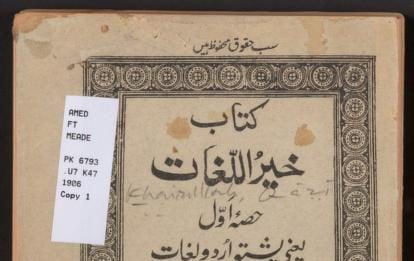 سب حقوق محفوظ ہیں
AMED
FT
MEADE
PK 6793
.U7 K47
1906
Copy 1
کتاب
خیر اللّغات
Khairullah,
حصّہ اوّل
یعنی پشتو اردو لغات